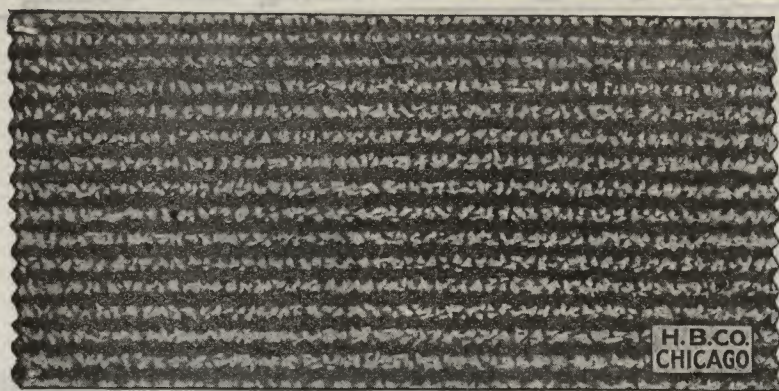 H.B.CO.
CHICAGO